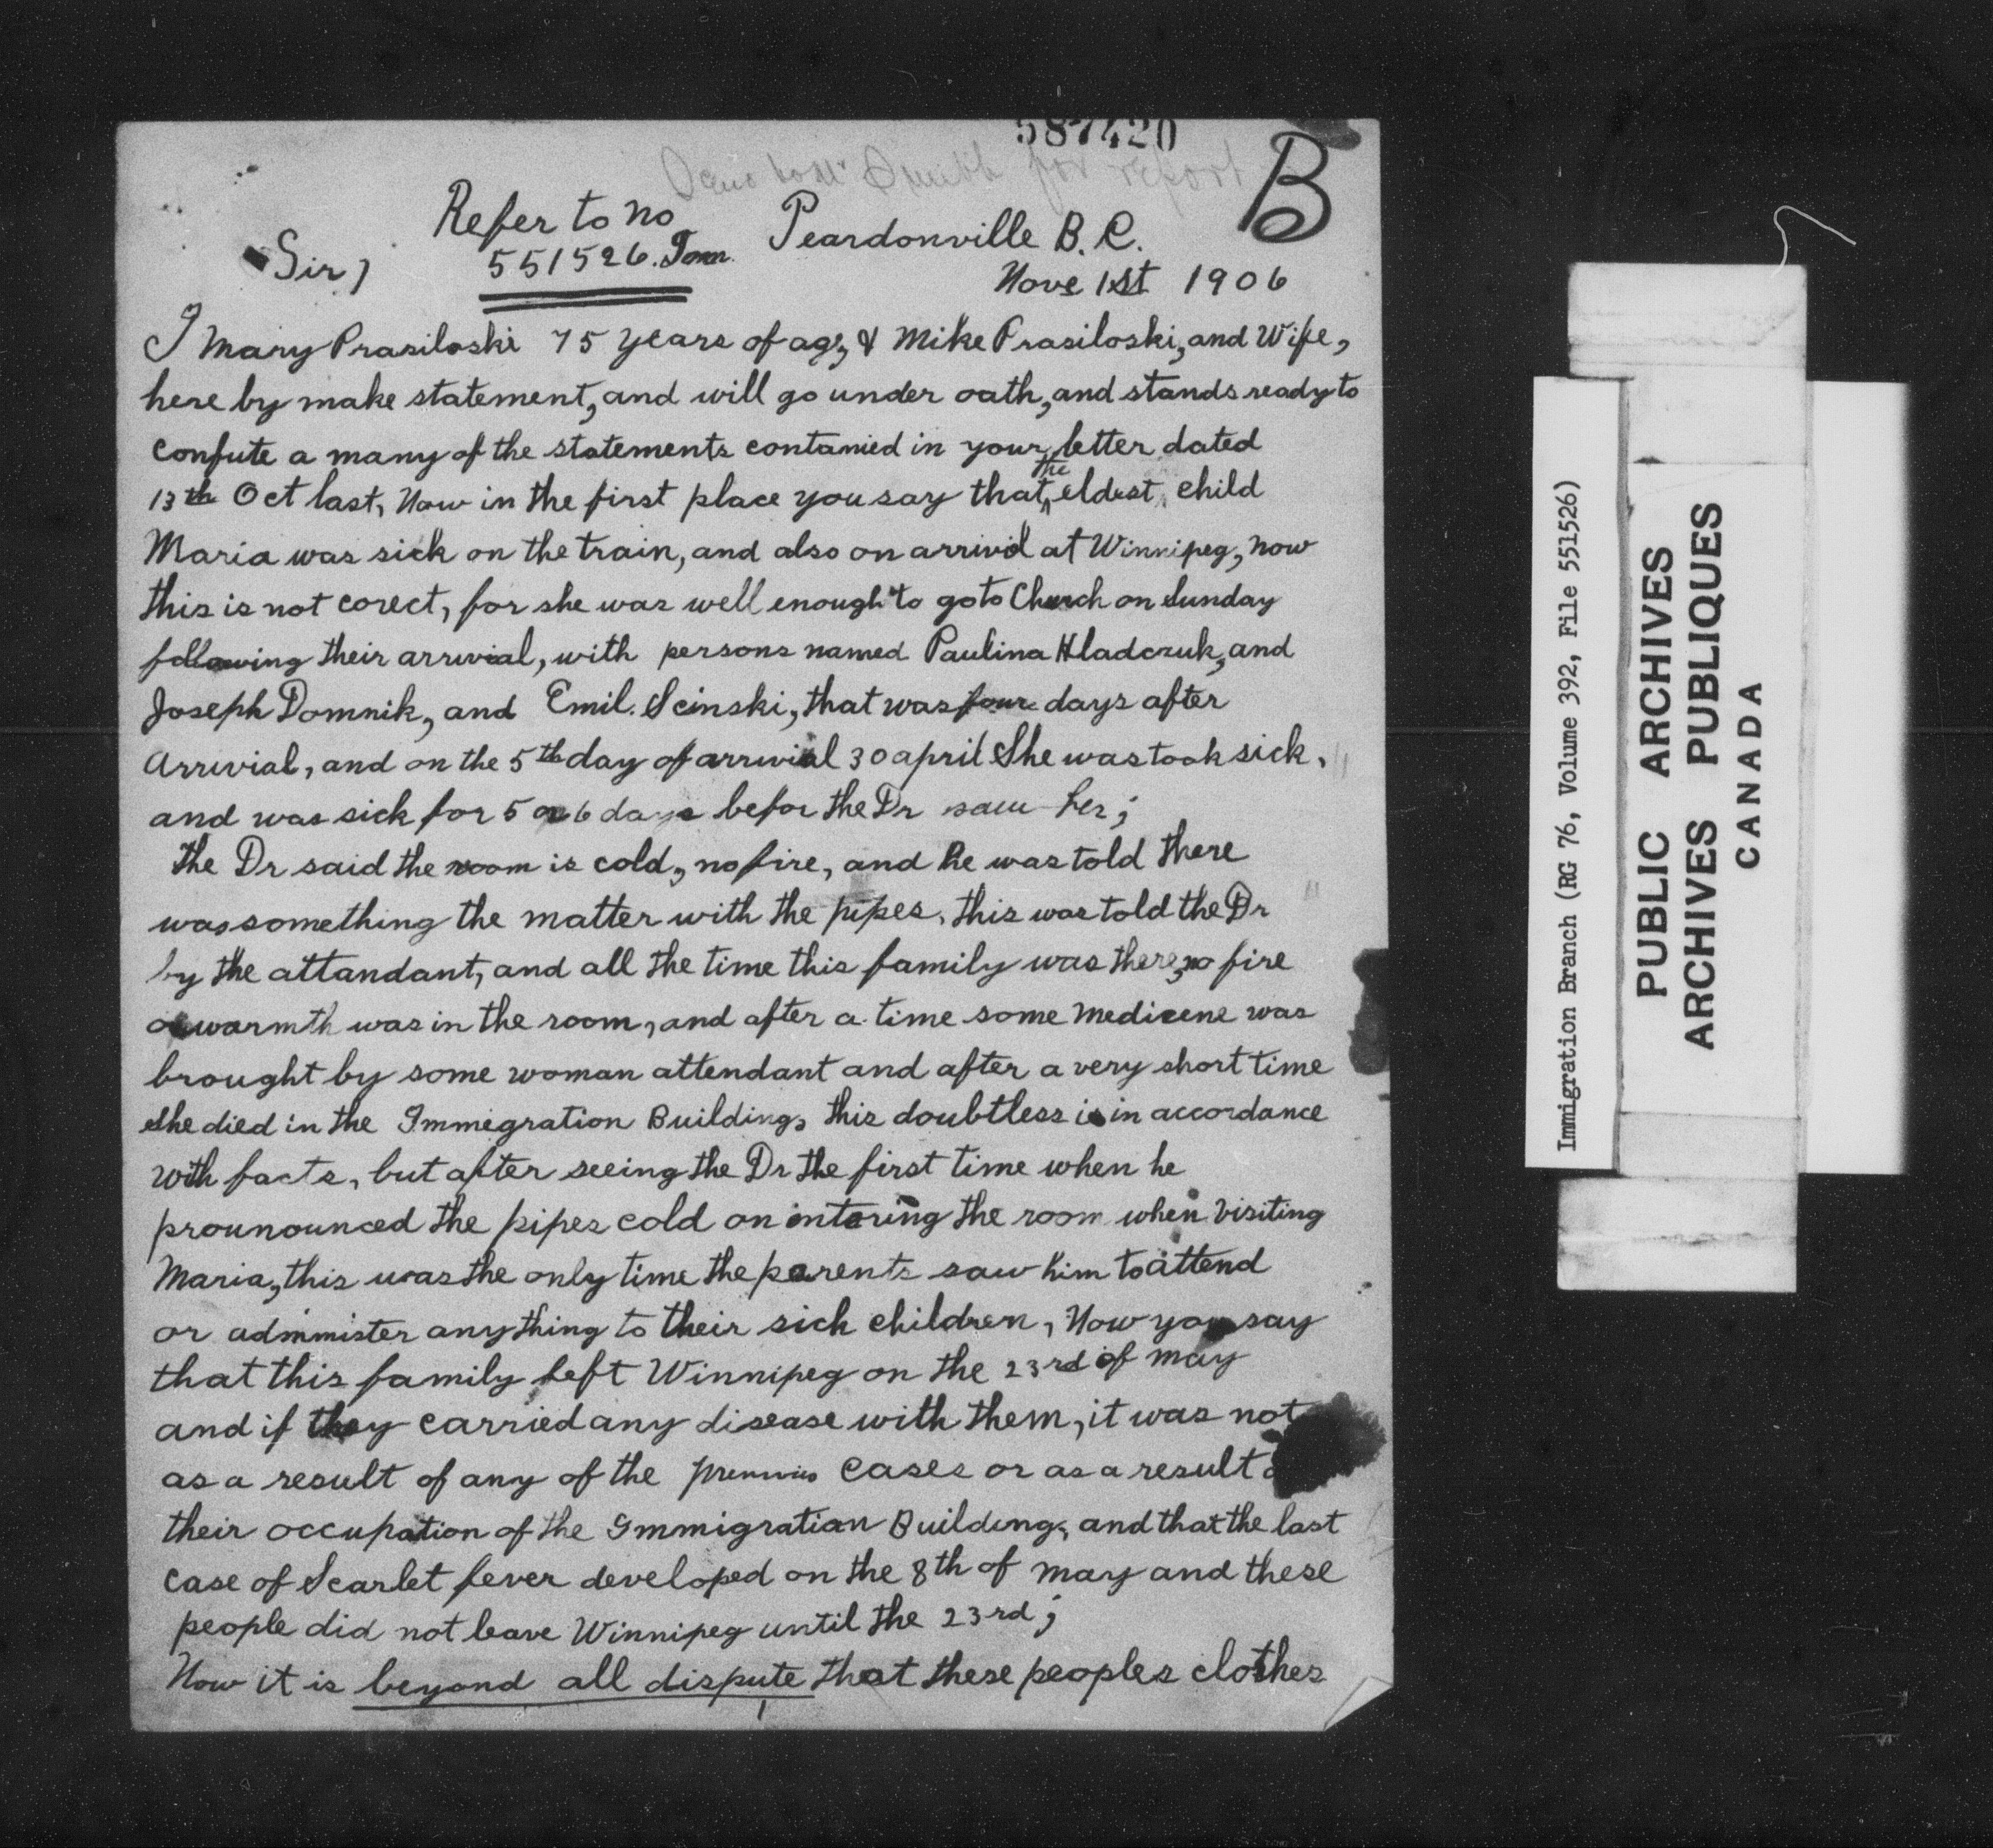 587420
for report
B
Refer to no
551526.
Peardonville B.C.
Sir,
Nove 1st 1906
I Mary Prasiloski 75 years of age, & Mike Prasiloski, and Wife,
here by make statement, and will go under oath, and stands ready to
confute a many of the statements contanied in your letter dated
13th Oct last, Now in the first place you say that the eldest child
Maria was sick on the train, and also on arrivil at Winnipeg, now
this is not corect, for she was well enough to go to Church on Sunday
following their arrivial, with persons named Paulina Hladczuk, and
Joseph Domnik, and Emil. Scinski, that was four days after
Arrivial, and on the 5th day of arrivial 30 april She was took sick,
and was sick for 5 or 6 days befor the Dr saw her;
the Dr said the room is cold, no fire, and he was told there
was something the matter with the pipes, this was told the Dr
by the attandant, and all the time this family was there, no fire
or warmth was in the room, and after a time some medicene was
brought by some woman attendant and after a very short time
she died in the Immegration Building, this doubtless is in accordance
with facts, but after seeing the Dr the first time when he
prounounced the pipes cold on intering the room when visiting
Maria, this was the only time the parents saw him to attend
or administer anything to their sick children, Now you say
that this family left Winnipeg on the 23rd of may
and if they carried any disease with them, it was not
as a result of any of the cases or as a result
their occupation of the Immigration Building, and that the last
case of Scarlet fever developed on the 8th of may and these
people did not leave Winnipeg until the 23rd;
Now it is beyond all dispute that these peoples clothes
1
Immigration Branch (RG 76, Volume 392, File 551526)
PUBLIC ARCHIVES
ARCHIVES PUBLIQUES
CANADA